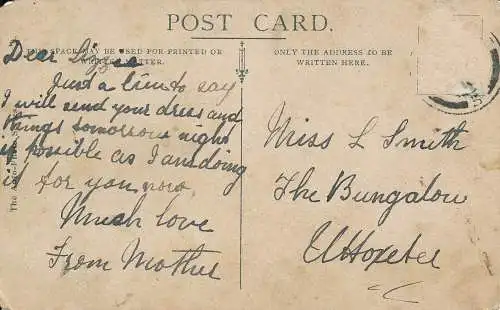 POST CARD.
THIS SPACE MAY BE USED FOR PRINTED OR
WRITTEN MATTER.
ONLY THE ADDRESS TO BE
WRITTEN HERE.
Dear
Just a line to say
I will send your dress and
things tomorrow night
if possible as I am doing
it for you now.
Much love
From Mother
Miss L Smith
The Bungalow
Uttoxeter